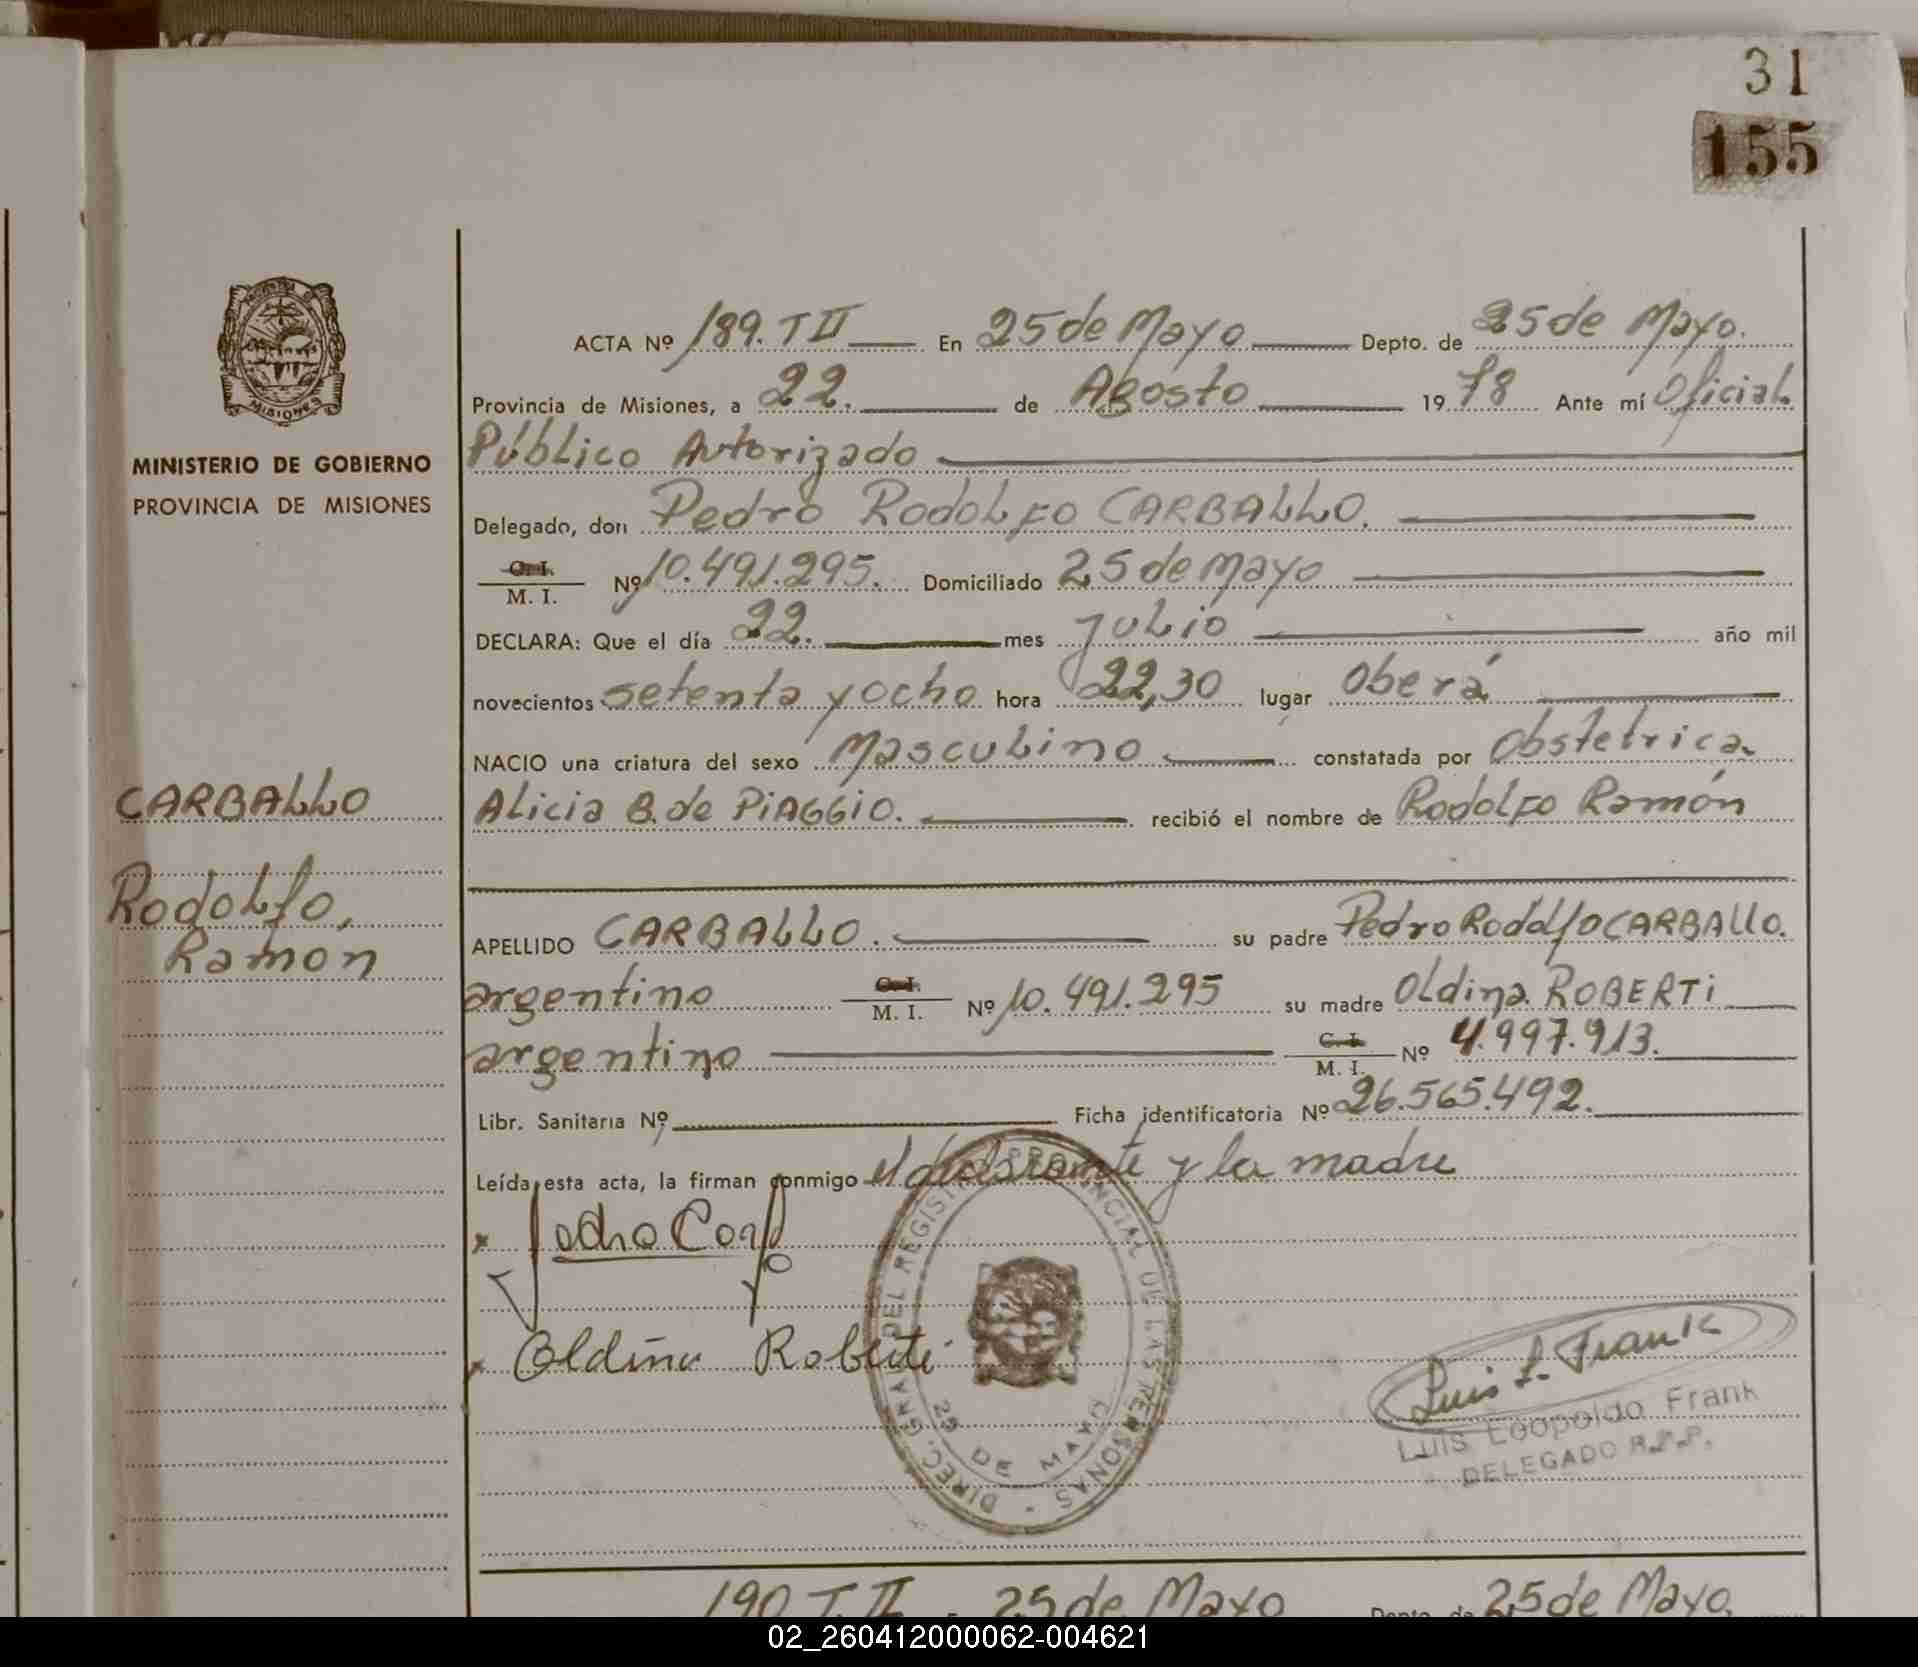 31
155
ACTA Nº 189. T II En 25 de Mayo Depto. de 25 de Mayo.
Provincia de Misiones, a 22. de Agosto 19 78 Ante mí Oficial
Público Autorizado
MINISTERIO DE GOBIERNO
PROVINCIA DE MISIONES
Delegado, don Pedro Rodolfo CARBALLO.
C. I.
M. I. Nº 10.491.295. Domiciliado 25 de mayo
DECLARA: Que el día 22. mes julio año mil
novecientos setenta y ocho hora 22,30 lugar Oberá
NACIO una criatura del sexo Masculino constatada por Obstetrica
Alicia B. de PiAGGiO. recibió el nombre de Rodolfo Ramón
CARBALLO
Rodolfo,
Ramón
APELLIDO CARBALLO. su padre Pedro Rodolfo CARBALLO.
argentino C. I. M. I. Nº 10.491.295 su madre Oldina ROBERTi
argentino C. I. M. I. Nº 4.997.913.
Libr. Sanitaria Nº Ficha identificatoria Nº 26.565.492.
Leída esta acta, la firman conmigo el declarante y la madre
x
x Oldina Roberti
DIREC. GRAL. DEL REGISTRO PROVINCIAL DE LAS PERSONAS
25 DE MAYO
Luis L. Frank
Luis Leopoldo Frank
DELEGADO R.P.P.
190 T. II - 25 de Mayo Depto. de 25 de Mayo.
02_260412000062-004621